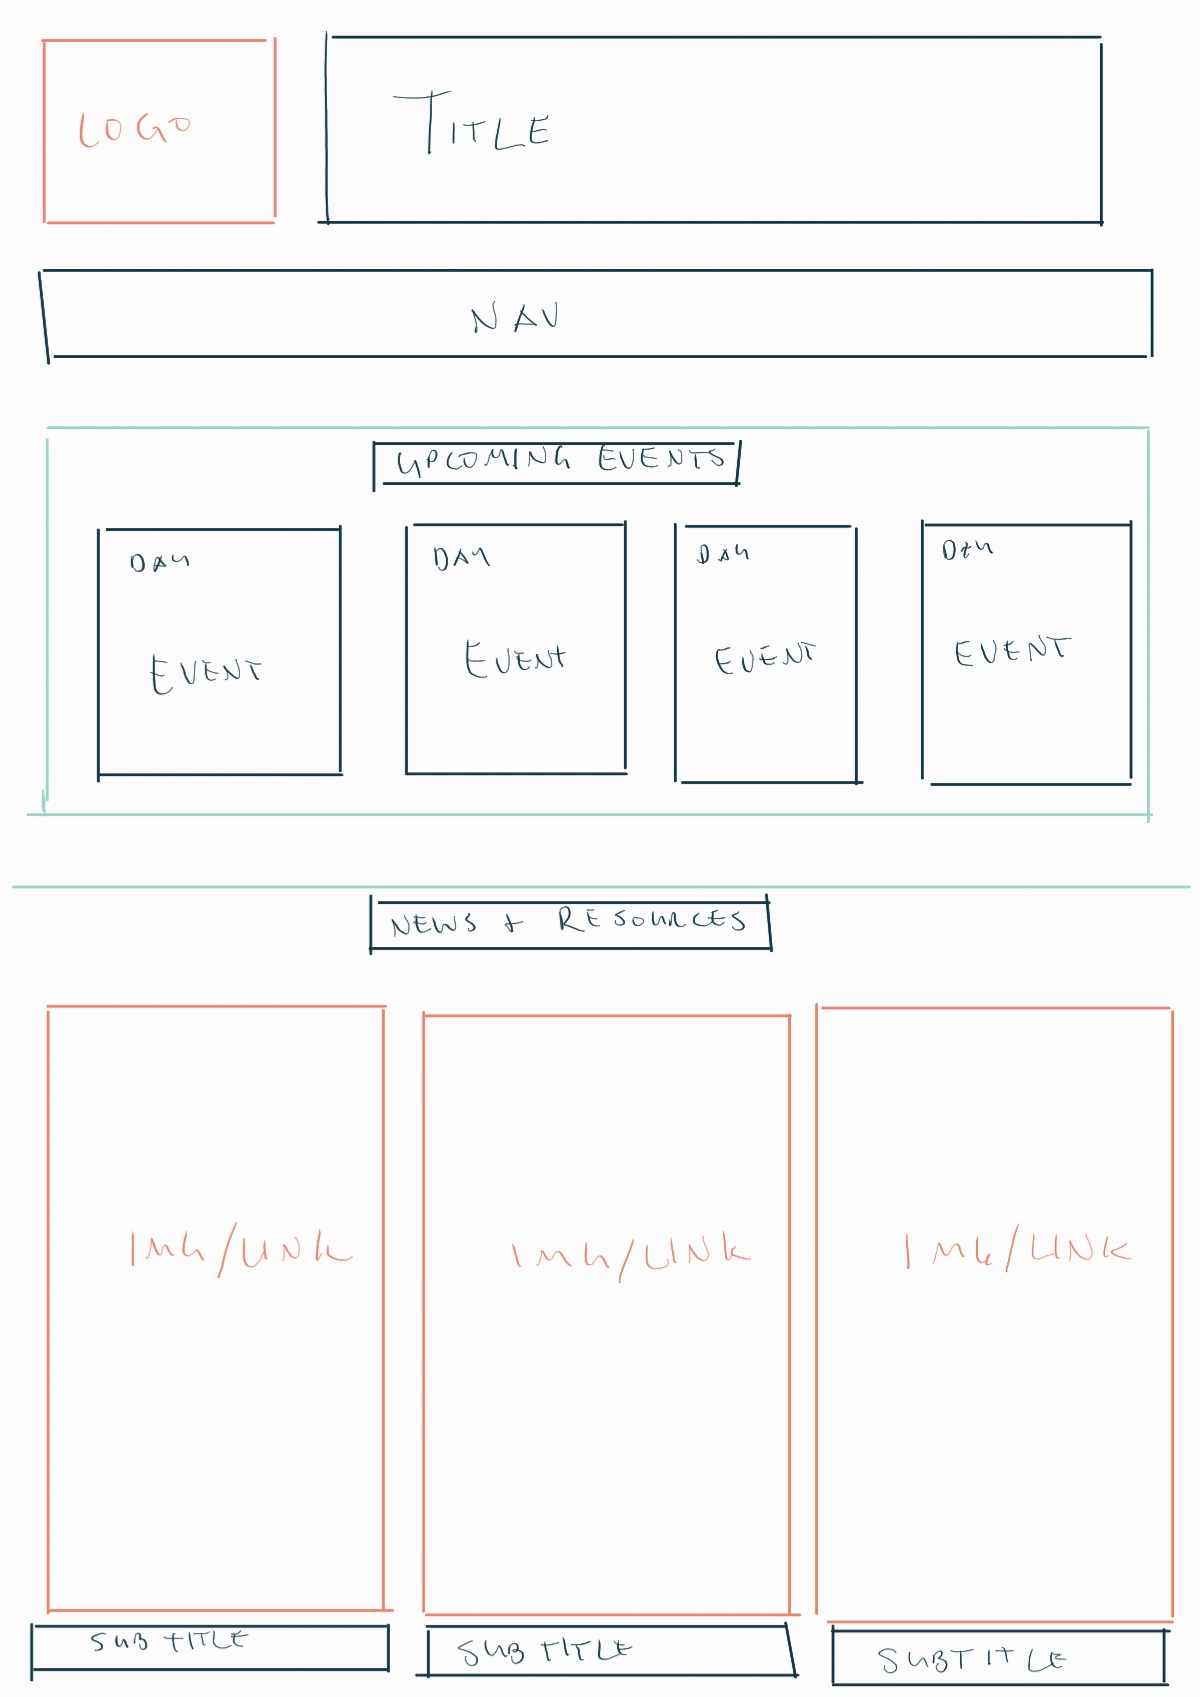 LOGO
TITLE
NAV
UPCOMING EVENTS
DAY DAY DAY DAY
EVENT EVENT EVENT EVENT
NEWS + RESOURCES
IMG/LINK IMG/LINK IMG/LINK
SUBTITLE SUBTITLE SUBTITLE